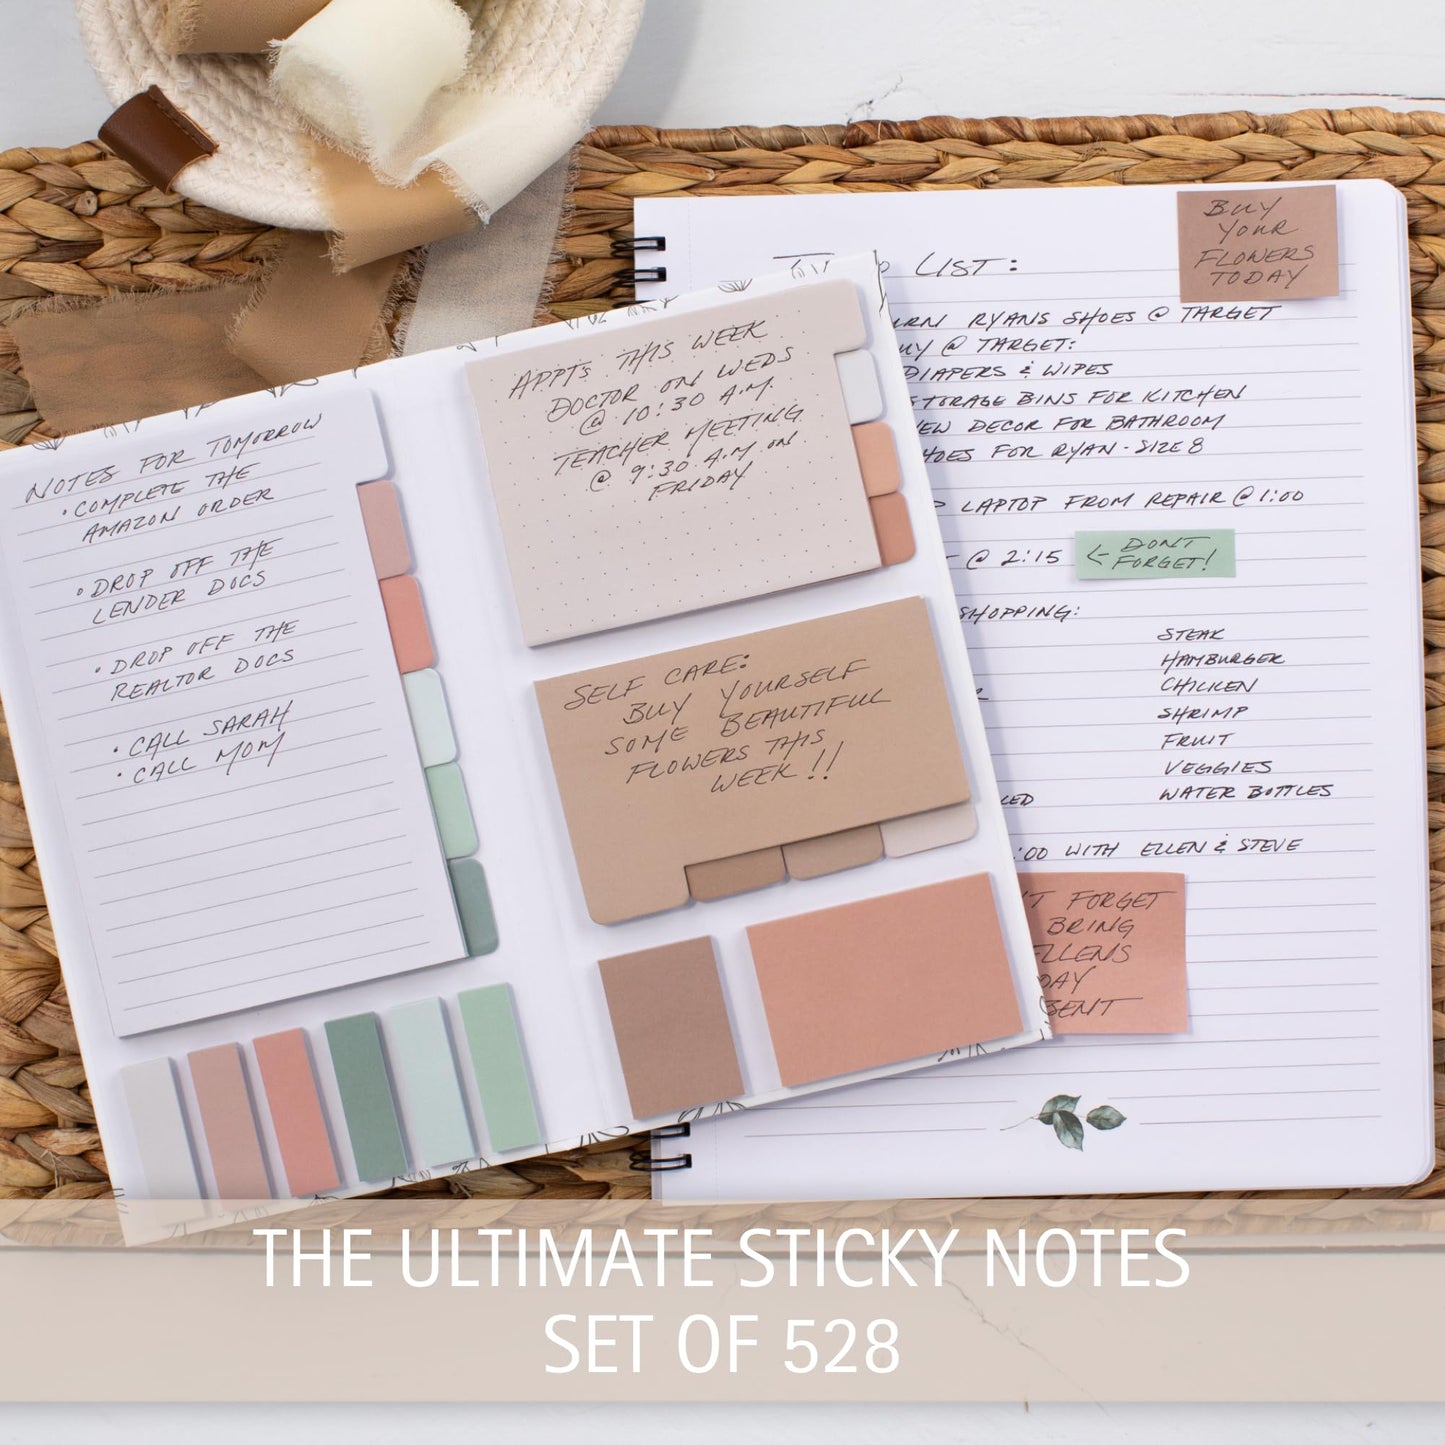 NOTES FOR TOMORROW
• COMPLETE THE
AMAZON ORDER
• DROP OFF THE
LENDER DOCS
• DROP OFF THE
REALTOR DOCS
• CALL SARAH
• CALL MOM
APPTS THIS WEEK
DOCTOR ON WEDS
@ 10:30 A.M.
TEACHER MEETING
@ 9:30 A.M ON
FRIDAY
SELF CARE:
BUY YOURSELF
SOME BEAUTIFUL
FLOWERS THIS
WEEK!!
LIST:
BUY
YOUR
FLOWERS
TODAY
RYANS SHOES @ TARGET
@ TARGET:
DIAPERS & WIPES
STORAGE BINS FOR KITCHEN
DECOR FOR BATHROOM
FOR RYAN - SIZE 8
LAPTOP FROM REPAIR @ 1:00
@ 2:15
<- DONT
FORGET!
SHOPPING:
STEAK
HAMBURGER
CHICKEN
SHRIMP
FRUIT
VEGGIES
WATER BOTTLES
:00 WITH ELLEN & STEVE
FORGET
BRING
ELLENS
THE ULTIMATE STICKY NOTES
SET OF 528